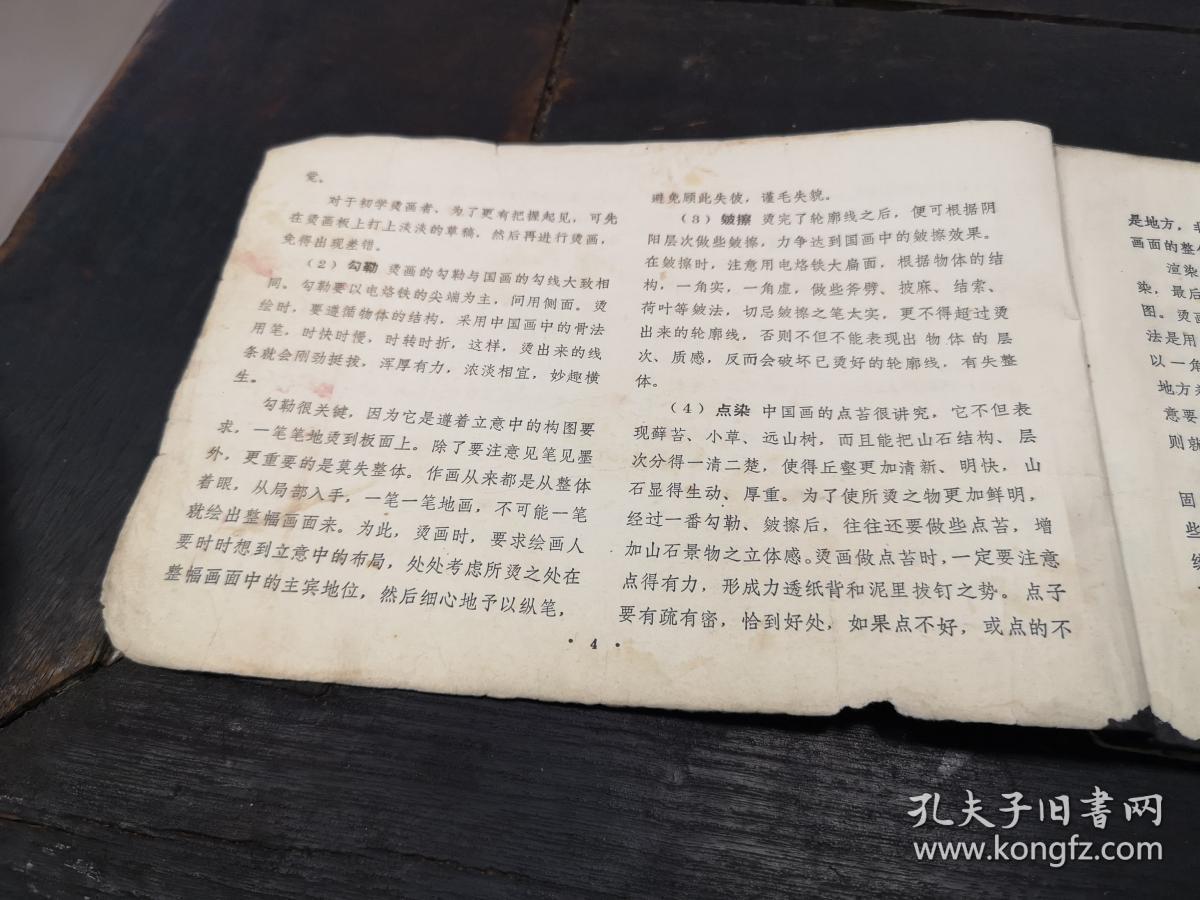 觉。
对于初学烫画者、为了更有把握起见，可先
在烫画板上打上淡淡的草稿，然后再进行烫画，
免得出现差错。
（2）勾勒 烫画的勾勒与国画的勾线大致相
同。勾勒要以电烙铁的尖端为主，间用侧面。烫
绘时，要遵循物体的结构，采用中国画中的骨法
用笔，时快时慢，时转时折，这样，烫出来的线
条就会刚劲挺拔，浑厚有力，浓淡相宜，妙趣横
生。
勾勒很关键，因为它是遵着立意中的构图要
求，一笔笔地烫到板面上。除了要注意见笔见墨
外，更重要的是莫失整体。作画从来都是从整体
着眼，从局部入手，一笔一笔地画，不可能一笔
就绘出整幅画面来。为此，烫画时，要求绘画人
要时时想到立意中的布局，处处考虑所烫之处在
整幅画面中的主宾地位，然后细心地予以纵笔，
避免顾此失彼，谨毛失貌。
（3）皴擦 烫完了轮廓线之后，便可根据阴
阳层次做些皴擦，力争达到国画中的皴擦效果。
在皴擦时，注意用电烙铁大扁面，根据物体的结
构，一角实，一角虚，做些斧劈、披麻、结索、
荷叶等皴法，切忌皴擦之笔太实，更不得超过烫
出来的轮廓线，否则不但不能表现出物体的层
次、质感，反而会破坏已烫好的轮廓线，有失整
体。
（4）点染 中国画的点苔很讲究，它不但表
现藓苔、小草、远山树，而且能把山石结构、层
次分得一清二楚，使得丘壑更加清新、明快，山
石显得生动、厚重。为了使所烫之物更加鲜明，
经过一番勾勒、皴擦后，往往还要做些点苔，增
加山石景物之立体感。烫画做点苔时，一定要注意
点得有力，形成力透纸背和泥里拔钉之势。点子
要有疏有密，恰到好处，如果点不好，或点的不
· 4 ·
是地方，
画面的整
渲染
染，最后
图。烫画
法是用
以一角
地方
意要
则就
固
些
孔夫子旧书网
www.kongfz.com